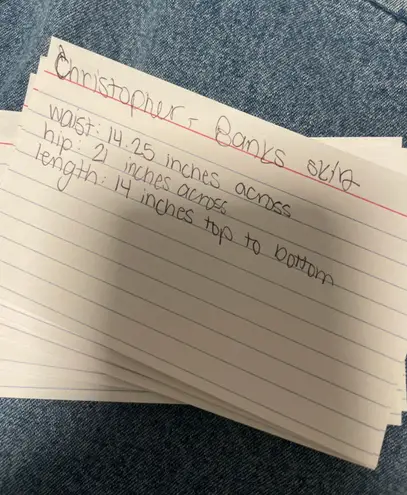 Christopher - Banks skirt
waist: 14.25 inches across
hip: 21 inches across
length: 14 inches top to bottom